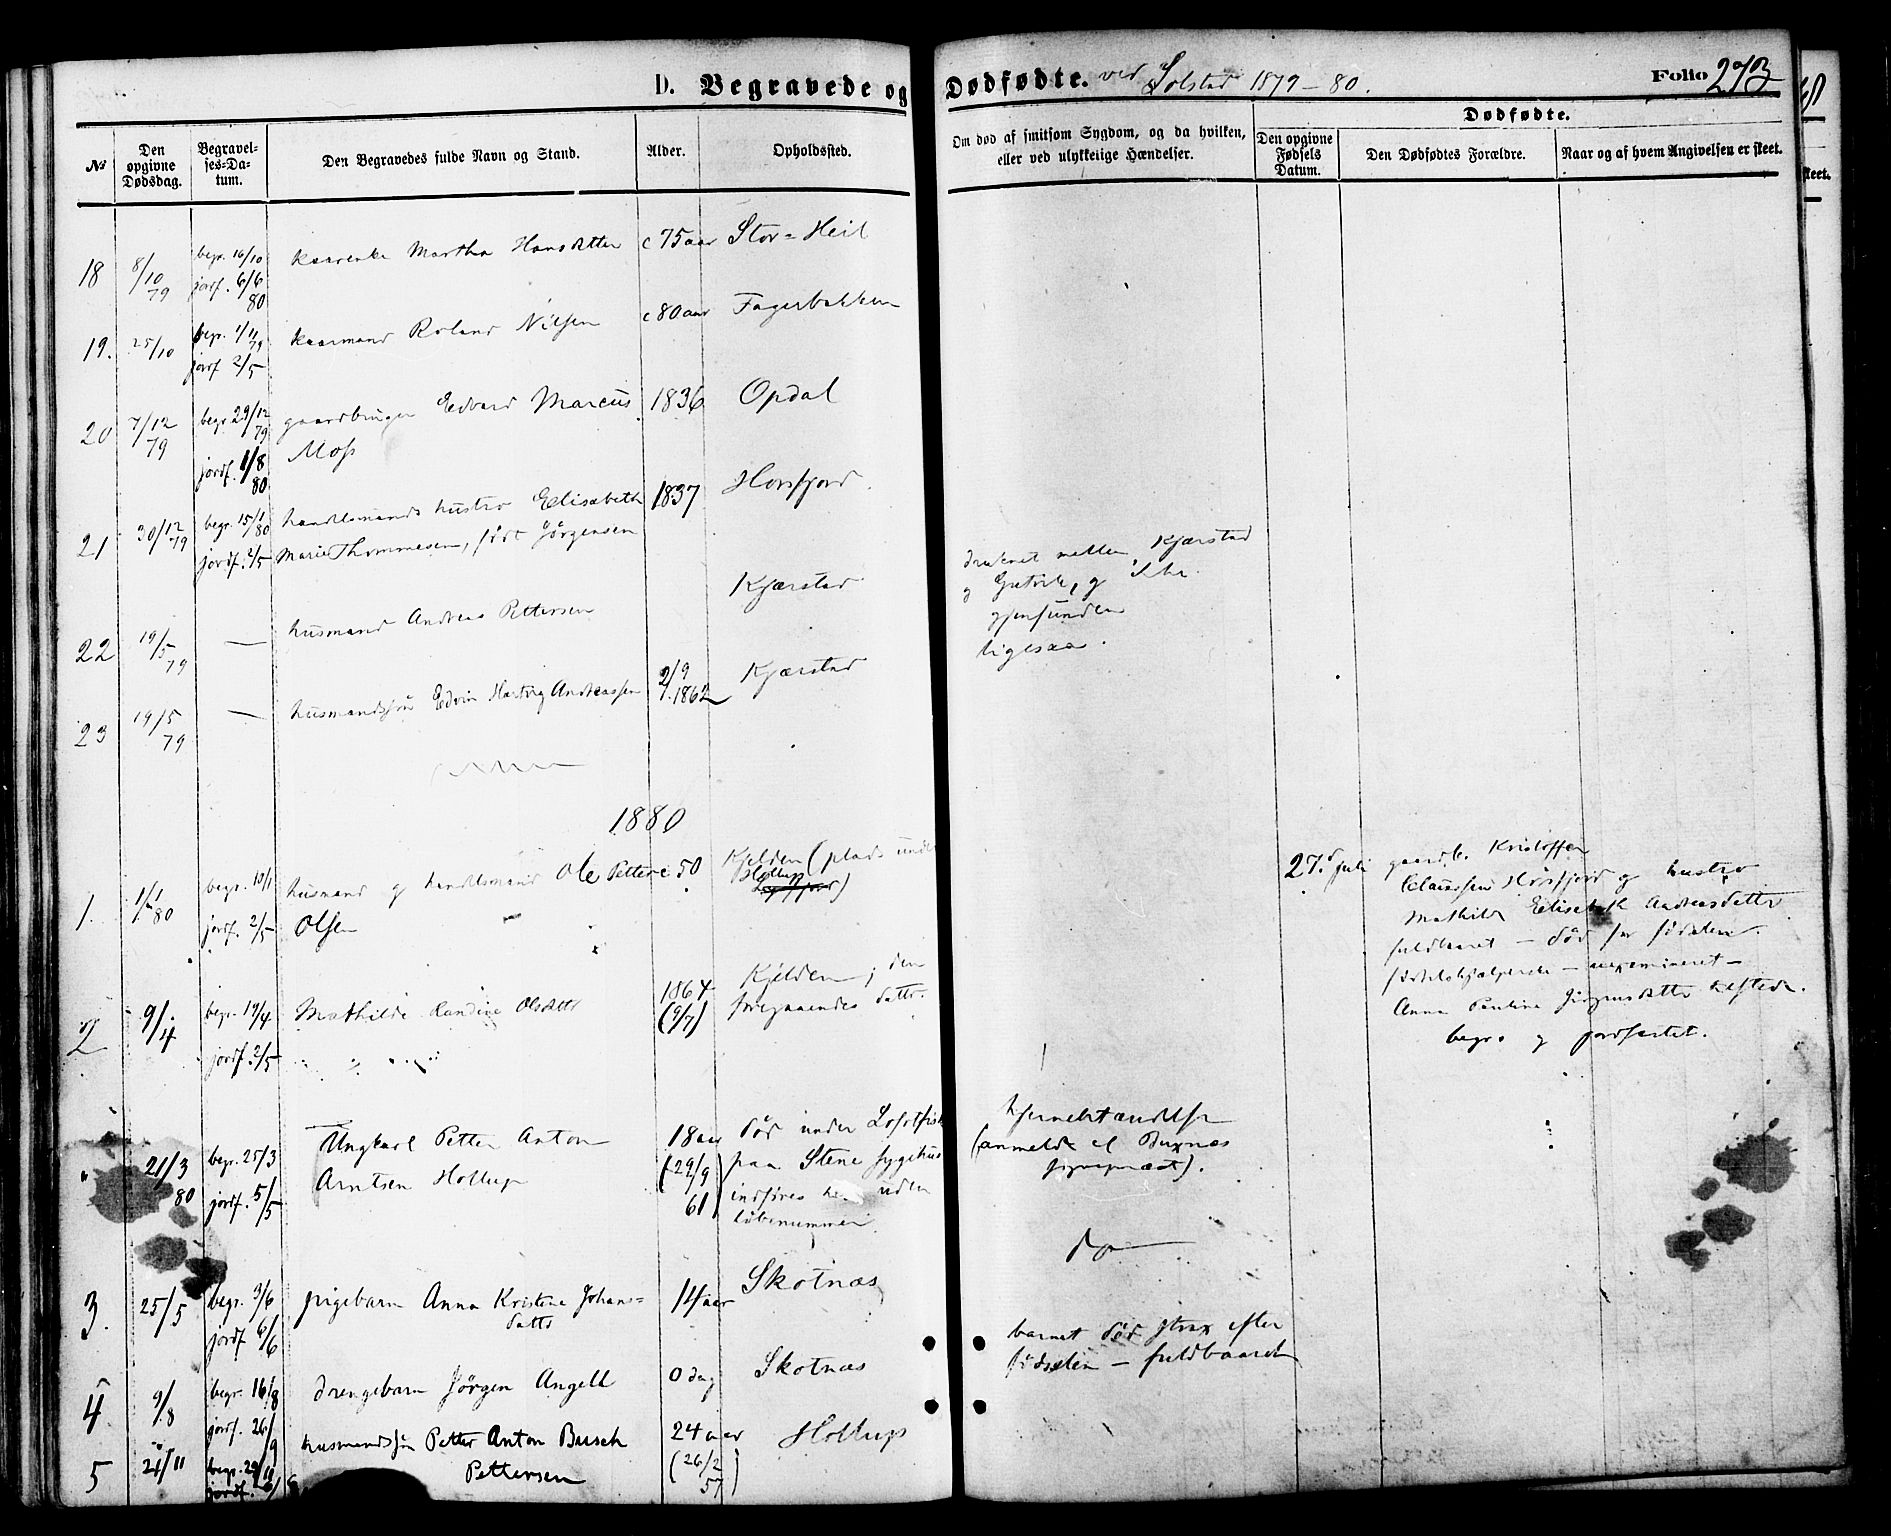 D. Begravede og Dødfødte. ved Solstad 1879-80. Folio 273
No
Den opgivne Dødsdag.
Begravelses-Datum.
Den Begravedes fulde Navn og Stand.
Alder.
Opholdssted.
Om død af smitsom Sygdom, og da hvilken, eller ved ulykkelige Hændelser.
Dødfødte.
Den opgivne Fødsels Datum.
Den Dødfødtes Forældre.
Naar og af hvem Angivelsen er skeet.
steet.
18 8/10 79 begr. 16/10 jordf. 6/6 80 Kaarenke Martha Hansdatter c 75 aar Stor-Heil
19. 25/10 begr. 1/11 79 jordf 2/5 Kaarmand Roland Nilsen c 80 aar Fagerbakken
20 7/12 79 begr 29/12 79 jordf. 1/8 80 gaardbruger Edvard Marcus 1836 Opdal
Moss
21 30/12 79 begr. 15/1 80 jordf. 2/5 handelsmands hustro Elisabeth 1837 Horsfjord.
Marie Thommesen, født Jørgensen
22 19/5 79 — husmand Andreas Pettersen Kjærstad
druknet mellem Kjærstad
og , og ikke
gjenfunden
23 19/5 79 — husmandssøn Edvin Hartvig Andreassen 2/9 1862 Kjærstad
ligesaa.
1880
1. 1/1 80 begr. 10/1 jordf. 2/5 husmand og handelsmand Ole Petter c 50 Kjelden (plads under
Olsen Hollup)
27. juli gaardb. Kristoffer
Claussen Horsfjord og hustro
Mathilde Elisabeth Andreasdatter
fuldbaaret — død før fødselen.
fødselshjælperske — uexamineret —
Anna Pauline Jørgensdatter
begr. og jordfæstet.
2 9/4 begr. 17/4 jordf. 2/5 Mathilde Randine Olsdatter 1864 (9/7) Kjelden, den
foregaaendes datter.
" 21/3 80 begr. 25/3 jordf. 5/5 Ungkarl Petter Anton 18 aar død under Lofotfisk
Arntsen Hollup (29/9 61) paa Stene sygehus
indføres her uden
løbenummer
hjernebetændelse
(anmeldt af Buxnæs
sogneprest).
do
3. 25/5 begr. 3/6 jordf 6/6 pigebarn Anna Kristine Johans=
datter 14 aar Skotnæs
4 9/8 begr. 16/8 jordf. 26/9 drengebarn Jørgen Angell 0 dag Skotnæs
barnet død strax efter
fødselen — fuldbaaret
5 21/11 begr. 29/11 jordf. husmandssøn Petter Anton Busch 24 aar Hollup
Pettersen (26/2 57)